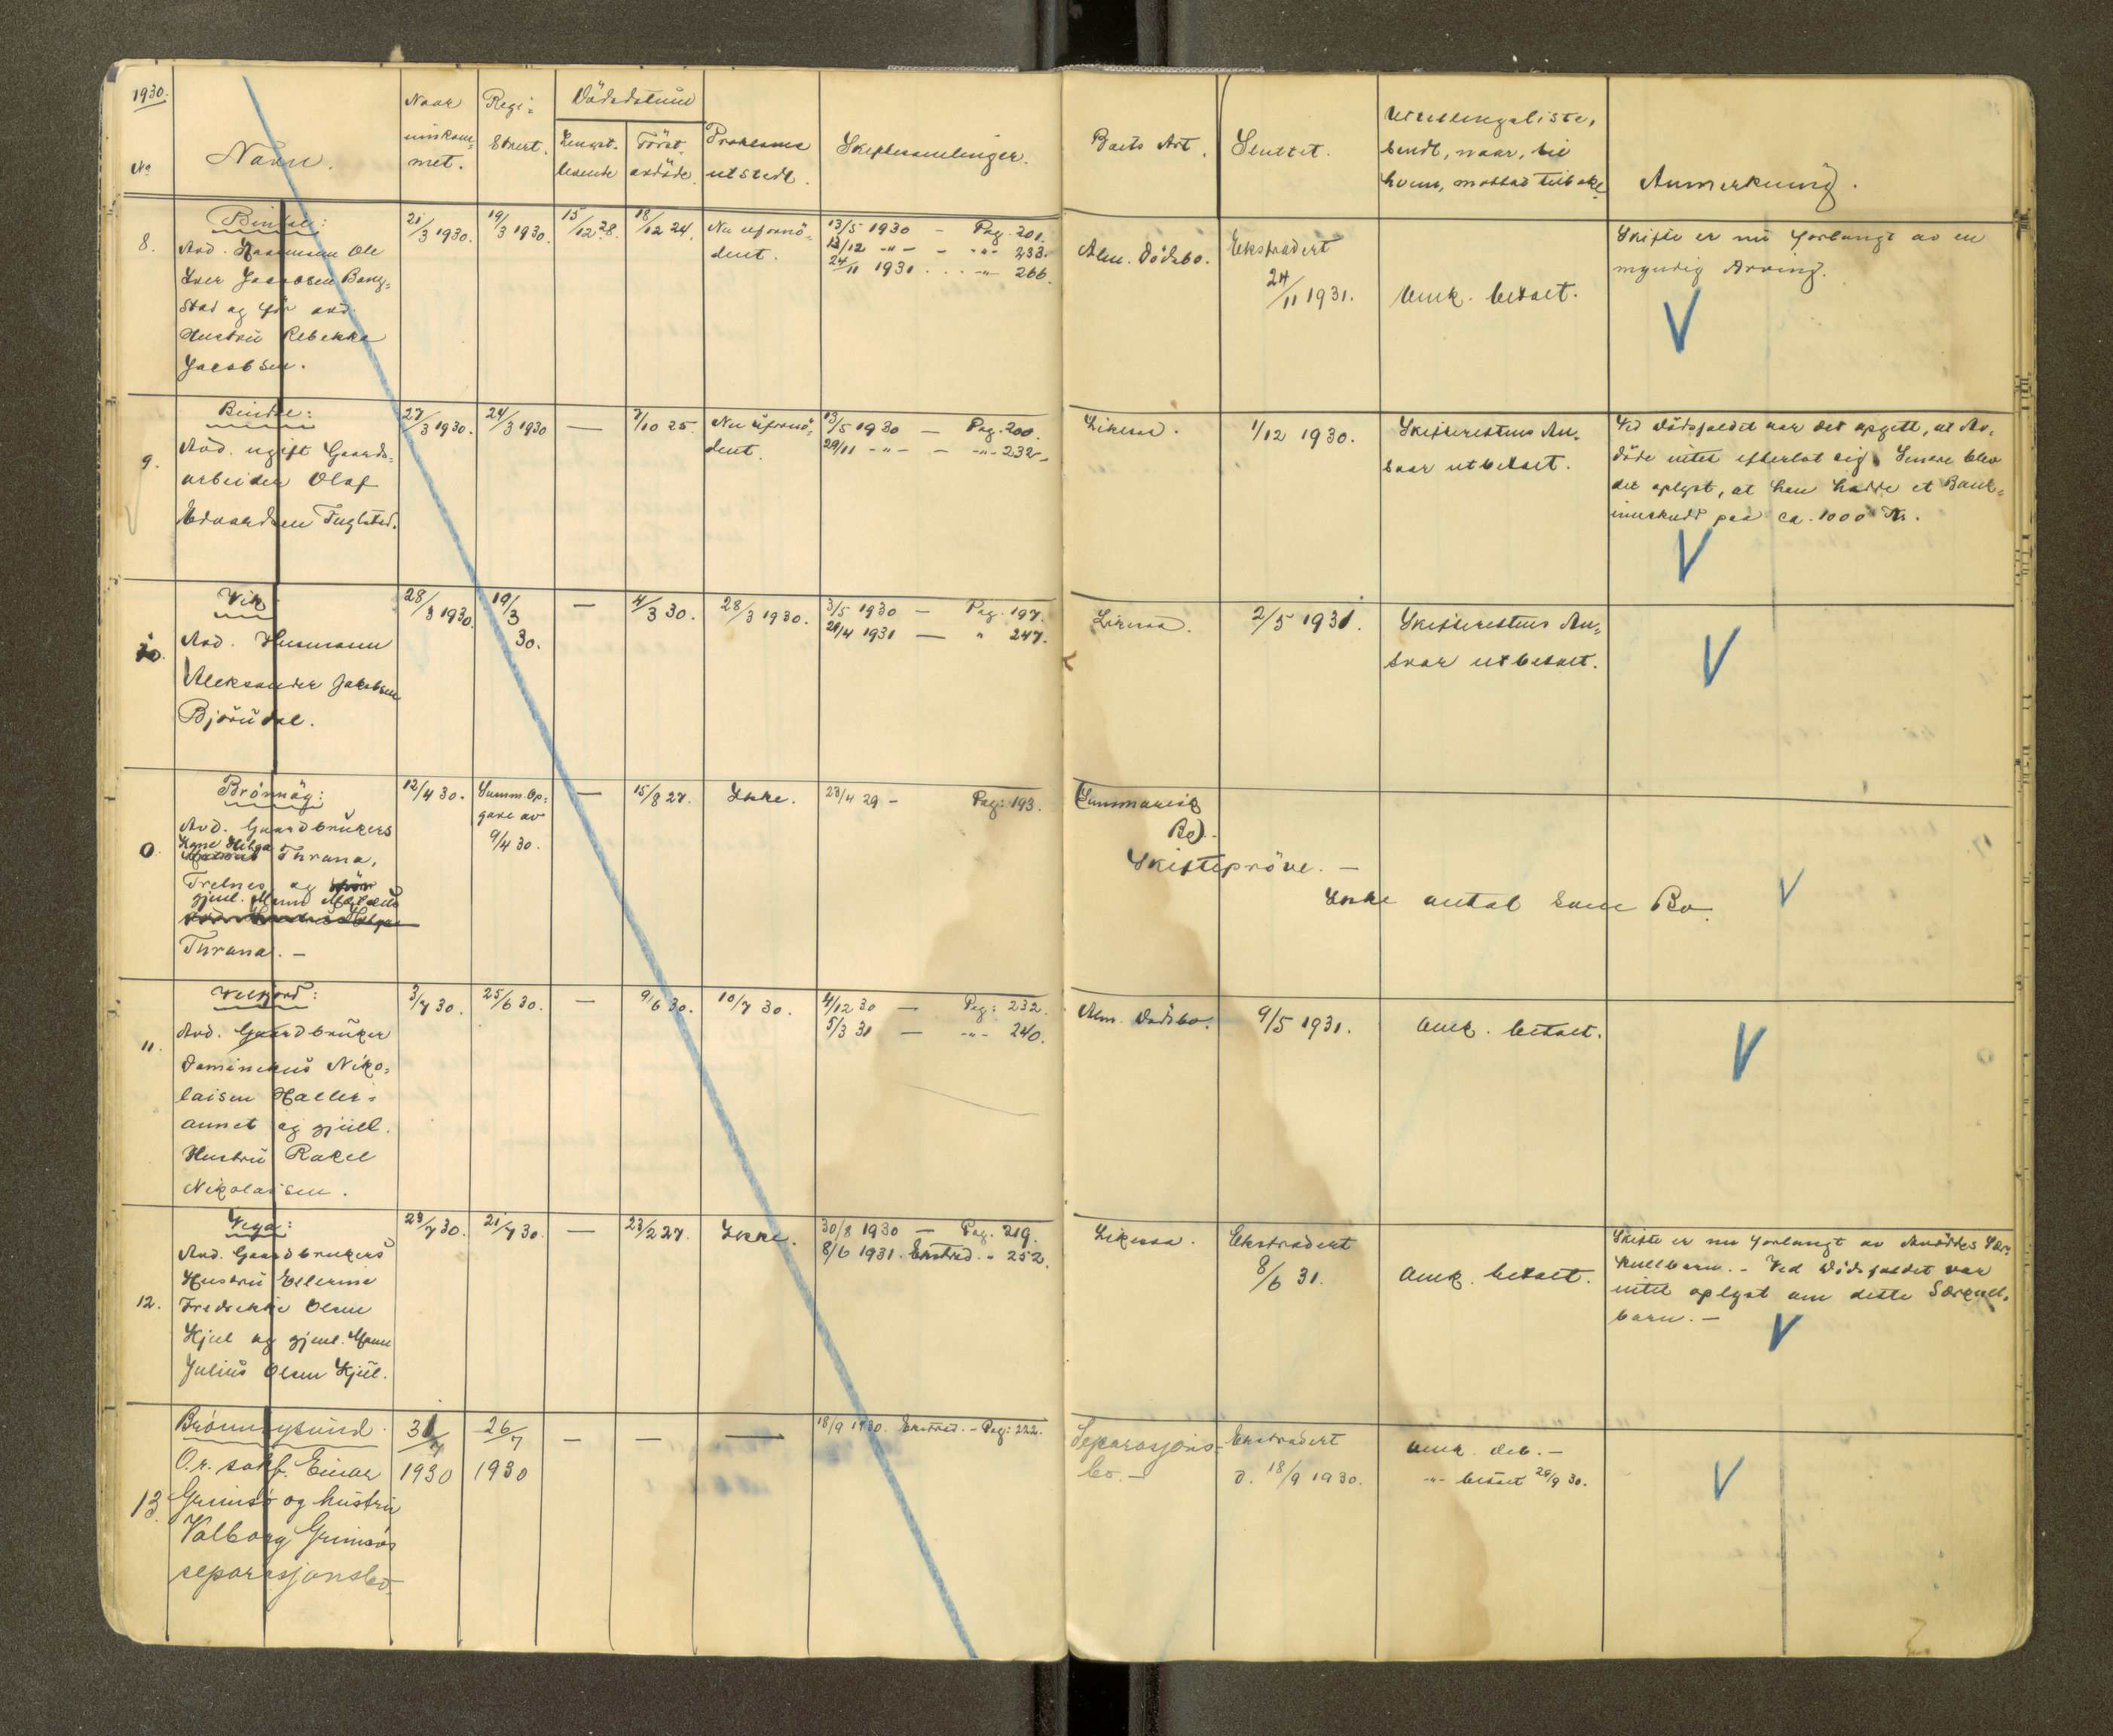 1930.
No
Navn.
Naar
innkom-
met.
Regi-
strert.
Dödsdatum
Lengst-
levende
Först
avdöde
Proklama
utstedt.
Skiftesamlinger.
Boets Art.
Sluttet.
sendt, naar, til
hvem, mottat tilbake
Anmerkning.
8.
Bindal:
Avd. Ole
Iver Jacobsen Bang-
stad og för avd.
Hustru Rebekka
Jacobsen.
21/3 1930.
19/3 1930.
15/12 28.
18/12 24.
Nu ufornö-
dent.
13/5 1930 - Pag. 201.
13/12 -"- - -"- 233.
24/11 1931 . . . -"- 266.
Alm. Dödsbo.
Ekstradert
24/11 1931.
Omk. betalt.
Skifte er nu forlangt av en
myndig Arving.
9.
Bindal:
Avd. ugift Gaards-
arbeider Olaf
Edvardsen Fuglstad.
27/3 1930.
24/3 1930
—
7/10 25.
Nu ufornö-
dent.
13/5 1930 — Pag. 200.
29/11 -"- — -"- 232.
Likesaa.
1/12 1930.
Skifterettens An-
svar utbetalt.
Ved Dödsfaldet var det opgitt, at Av-
döde intet efterlot sig. Senere blev
det oplyst, at han hadde et Bank-
innskudd paa ca. 1000 Kr.
10.
Vik
Avd. Husmann
Aleksander Jakobsen
Björndal.
28/3 1930.
19/3
30.
—
4/3 30.
28/3 1930.
3/5 1930 — Pag. 197.
29/4 1931 — " 247.
Likesaa.
2/5 1931.
Skifterettens An-
svar utbetalt.
0
Brönnöy:
Avd. Gaardbrukers
Kone Helga
Thrana,
Trelnes og
gjenl. Mann
Thrana. -
12/4 30.
Summ. Op-
gave av
9/4 30.
—
15/8 27.
Ikke.
23/4 29 - Pag: 193.
(Summarisk
Bo).
Skiftepröve. —
Ikke antat som Bo.
11.
Velfjord:
Avd. Gaardbruker
Dominikus Niko-
laisen Haller-
aunet og gjenl.
Hustru Rakel
Nikolaisen.
3/7 30.
25/6 30.
—
9/6 30.
10/7 30.
4/12 30 — Pag: 232.
5/3 31 — -"- 240.
Alm. Dödsbo.
9/5 1931.
Omk. betalt.
12.
Vega:
Avd. Gaardbrukers
Hustru Ellerine
Fredrikke Olsen
Kjul og gjenl. Mann
Julius Olsen Kjul.
23/7 30.
21/7 30.
—
23/2 27.
Ikke.
30/8 1930 — Pag. 219.
8/6 1931. Ekstrad. " 252.
Likesaa.
Ekstradert
8/6 31.
Omk. betalt.
Skifte er nu forlangt av Avdödes Sær-
kullbarn. - Ved Dödsfaldet var
intet oplyst om dette Særkull-
barn. -
13.
Brönnöysund.
O.r. sakf. Einar
Grimsö og hustru
Valborg Grimsös
separasjonsbo
31/7
1930
26/7
1930
—
—
—
18/9 1930. Ekstrad. - Pag: 222.
Separasjons-
bo. -
Ekstradert
d. 18/9 1930.
Omk. deb. -
-"- betalt 29/9 30.